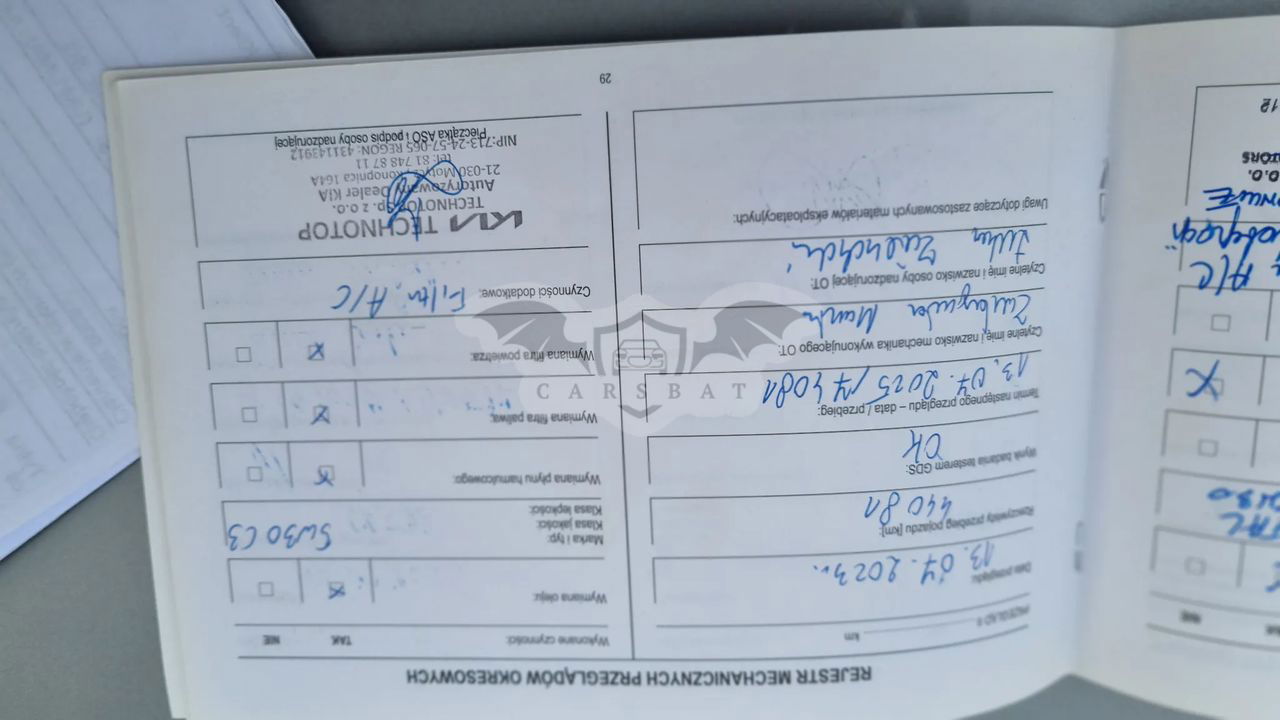 REJESTR MECHANICZNYCH PRZEGLĄDÓW OKRESOWYCH
PRZEGLĄD
km
Data przeglądu:
13.07.2023r.
Rzeczywisty przebieg pojazdu [km]:
44081
Wynik badania testerem GDS:
OK
Termin następnego przeglądu – data / przebieg:
13.07.2025 / 74081
Czytelne imię i nazwisko mechanika wykonującego OT:
Czytelne imię i nazwisko osoby nadzorującej OT:
Uwagi dotyczące zastosowanych materiałów eksploatacyjnych:
Wykonane czynności: TAK NIE
Wymiana oleju:
Marka i typ: 5W30 C3
Klasa jakości:
Klasa lepkości:
Wymiana płynu hamulcowego:
Wymiana filtra paliwa:
Wymiana filtra powietrza:
Czynności dodatkowe: Filtr A/C
KIA TECHNOTOP
TECHNOTOP sp. z o.o.
Autoryzowany Dealer KIA
21-030 Motycz Konopnica 164A
tel. 81 748 87 11
NIP:713-24-57-065 REGON: 431143912
Pieczątka ASO i podpis osoby nadzorującej
29
NIE
A/C
O.O.
12
CARSBAT